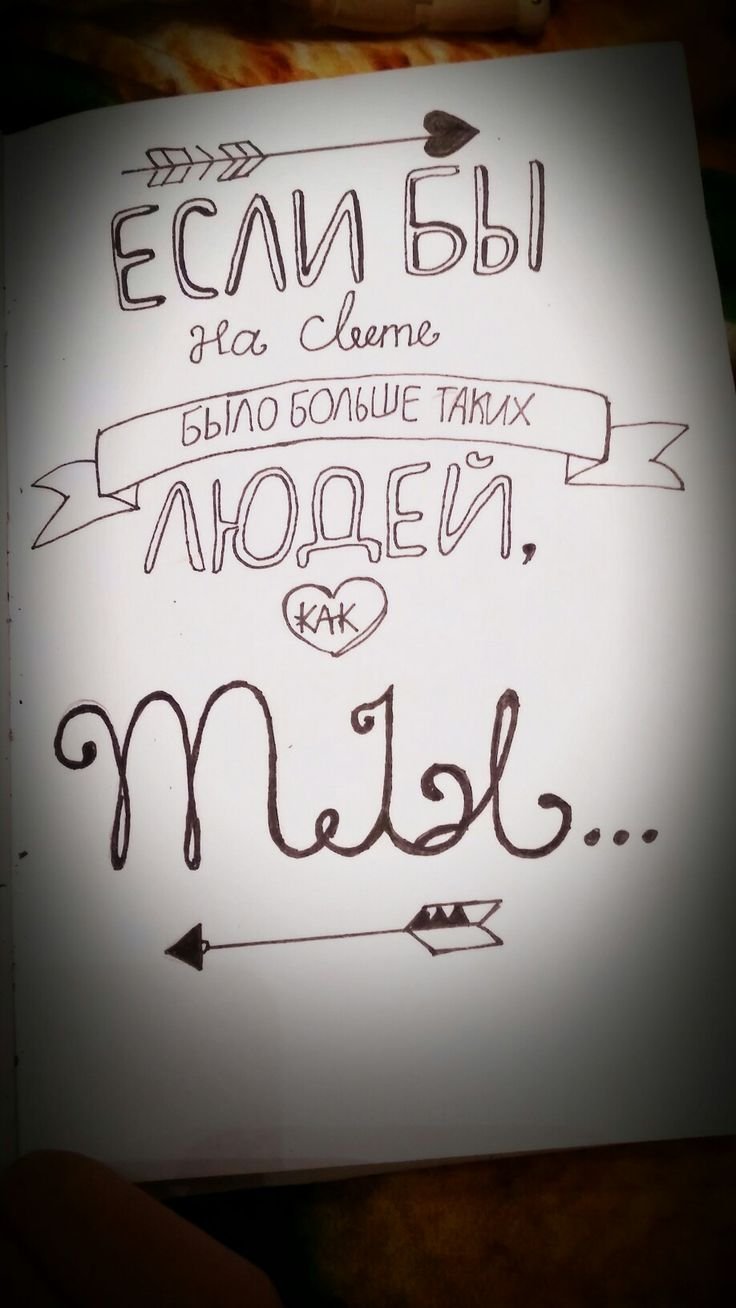 ЕСЛИ БЫ
на свете
БЫЛО БОЛЬШЕ ТАКИХ
ЛЮДЕЙ,
КАК
ты...